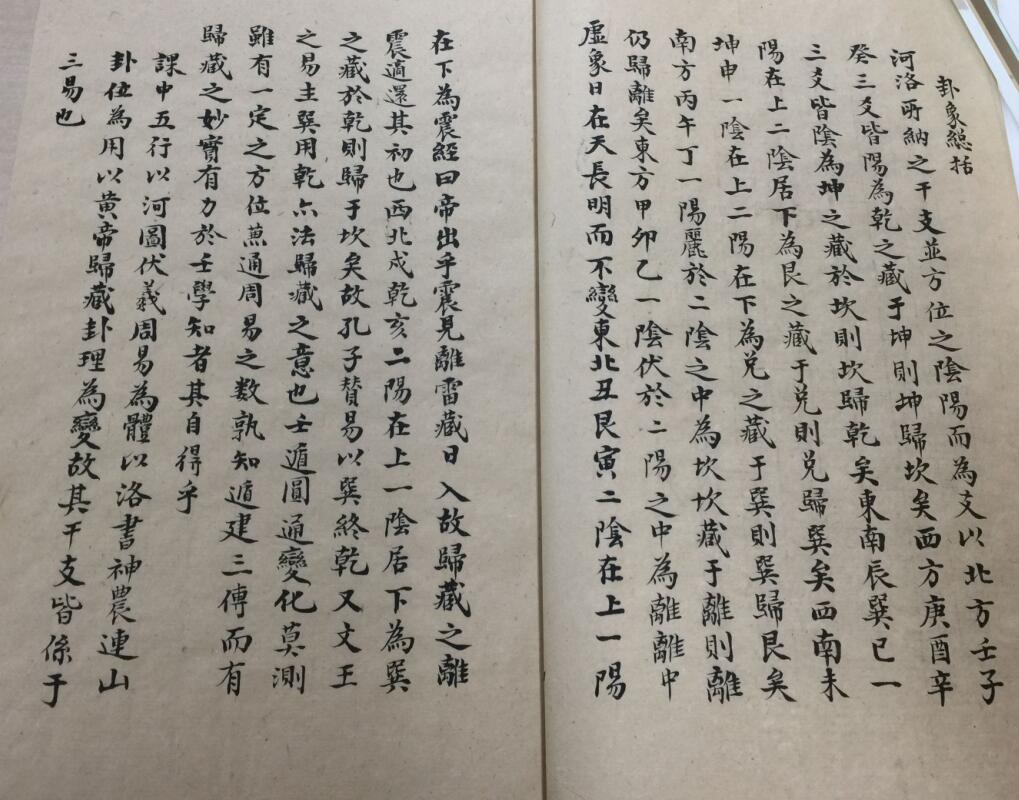 卦象總括
河洛所納之干支並方位之陰陽而為爻以北方壬子
癸三爻皆陽為乾之藏于坤則坤歸坎矣西方庚酉辛
三爻皆陰為坤之藏於坎則坎歸乾矣東南辰巽巳一
陽在上二陰居下為艮之藏于兌則兌歸巽矣西南未
坤申一陰在上二陽在下為兌之藏于巽則巽歸艮矣
南方丙午丁一陽麗於二陰之中為坎坎藏于離則離
仍歸離矣東方甲卯乙一陰伏於二陽之中為離離中
虛象日在天長明而不變東北丑艮寅二陰在上一陽
在下為震經曰帝出乎震見離雷藏日入故歸藏之離
震適還其初也西北戍乾亥二陽在上一陰居下為巽
之藏於乾則歸于坎矣故孔子賛易以巽終乾又文王
之易主巽用乾亦法歸藏之意也壬遁圓通變化莫測
雖有一定之方位蕉通周易之数孰知遁建三傳而有
歸藏之妙實有力於壬學知者其自得乎
課中五行以河圖伏羲周易為體以洛書神農連山
卦位為用以黄帝歸藏卦理為變故其干支皆係于
三易也